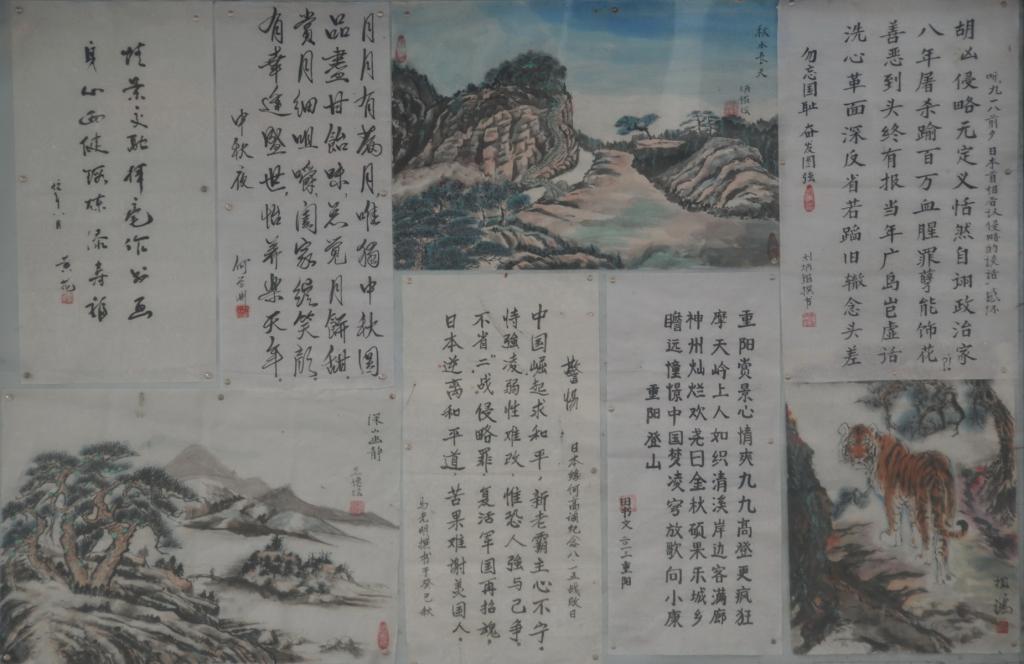 听九一八前夕日本首相否认侵略的谈话感怀
胡凶侵略元定义恬然自诩政治家
八年屠杀踰百万血腥罪孽能饰花?!
善恶到头终有报当年广岛岂虚话
洗心革面深反省若蹈旧辙念头差
勿忘国耻 奋发图强
秋水长天
月月有 月,唯獨中秋圆
品盡甘飴味,总觉月餅甜,
赏月细咀嚼阖家绽笑颜,
有幸逢 世,怡养樂天年,
中秋夜
挥毫作书画
身心 健 添寿福
重阳赏景心情爽九九高登更疯狂
摩天岭上人如织清溪岸边客满廊
神州灿烂欢尧日金秋硕果乐城乡
瞻远憧憬中国梦凌穹放歌问小康
重阳登山
田书文 重阳
警惕
日本缘何高调纪念八一五战败日
中国崛起求和平,新老霸主心不宁,
恃强凌弱性难改 惟恐人强与己争,
不省"二"战侵略罪 复活军国再招魂,
日本逆离和平道 苦果难谢美国人,
马光明撰书于癸巳秋
深山幽静